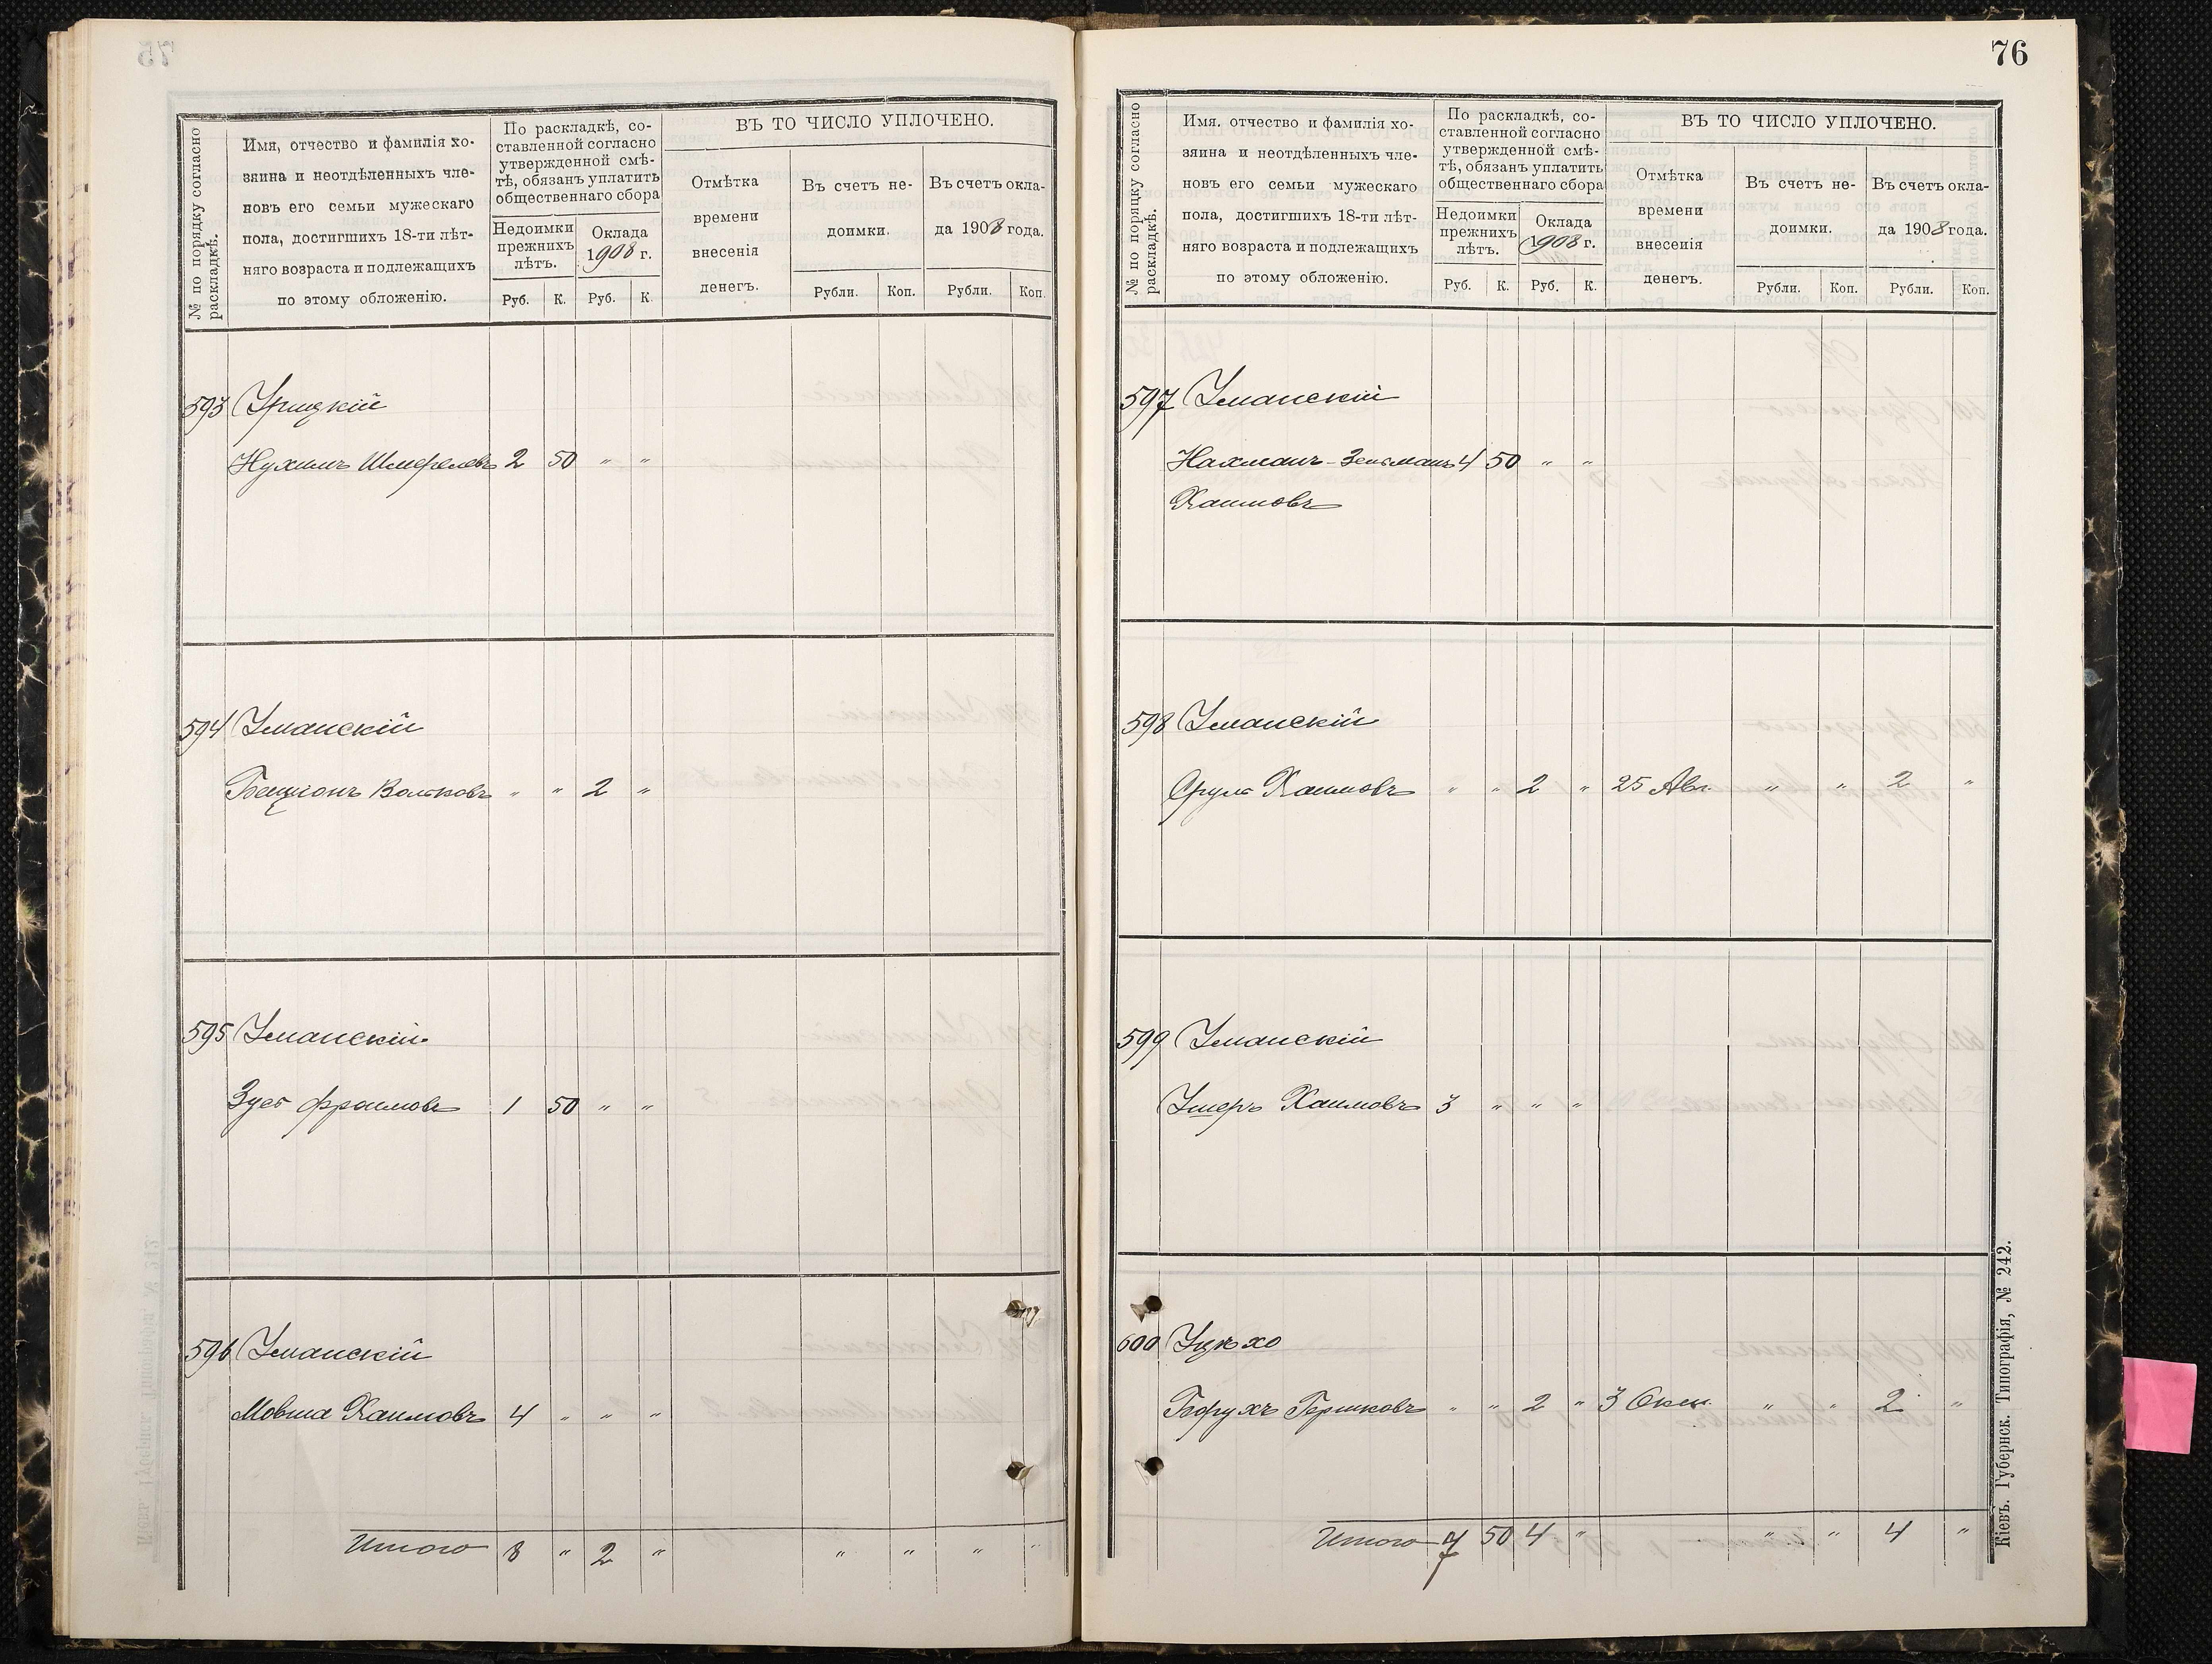 № по порядку согласно
раскладкѣ.
Имя, отчество и фамилія хо-
зяина и неотдѣленныхъ чле-
новъ его семьи мужескаго
пола, достигшихъ 18-ти лѣт-
няго возраста и подлежащихъ
по этому обложенію.
По раскладкѣ, со-
ставленной согласно
утвержденной смѣ-
тѣ, обязанъ уплатить
общественнаго сбора
Недоимки
прежнихъ
лѣтъ.
Оклада
1908 г.
Руб. К. Руб. К.
ВЪ ТО ЧИСЛО УПЛОЧЕНО.
Отмѣтка
времени
внесенія
денегъ.
Въ счетъ не-
доимки.
Въ счетъ окла-
да 1908 года.
Рубли. Коп. Рубли. Коп.
593 Урицкій
Нухимъ Шмерелевъ 2 50 " "
594 Уманскій
Бенціонъ Волковъ " " 2 "
595 Уманскій
Зусь Фраимовъ 1 50 " "
596 Уманскій
Мовша Хаимовъ 4 " " "
Итого 8 " 2 " " " " "
76
№ по порядку согласно
раскладкѣ.
Имя, отчество и фамилія хо-
зяина и неотдѣленныхъ чле-
новъ его семьи мужескаго
пола, достигшихъ 18-ти лѣт-
няго возраста и подлежащихъ
по этому обложенію.
По раскладкѣ, со-
ставленной согласно
утвержденной смѣ-
тѣ, обязанъ уплатить
общественнаго сбора
Недоимки
прежнихъ
лѣтъ.
Оклада
1908 г.
Руб. К. Руб. К.
ВЪ ТО ЧИСЛО УПЛОЧЕНО.
Отмѣтка
времени
внесенія
денегъ.
Въ счетъ не-
доимки.
Въ счетъ окла-
да 1908 года.
Рубли. Коп. Рубли. Коп.
597 Уманскій
Нахманъ-Зельманъ 4 50 " "
Хаимовъ
598 Уманскій
Сруль Хаимовъ " " 2 " 25 Авг. " " 2 "
599 Уманскій
Ушеръ Хаимовъ 3 " " "
600 Уцѣхо
Борухъ Гершковъ " " 2 " 3 Окт. " " 2 "
Итого 7 50 4 " " " 4 "
Кіевъ. Губернск. Типографія, № 242.